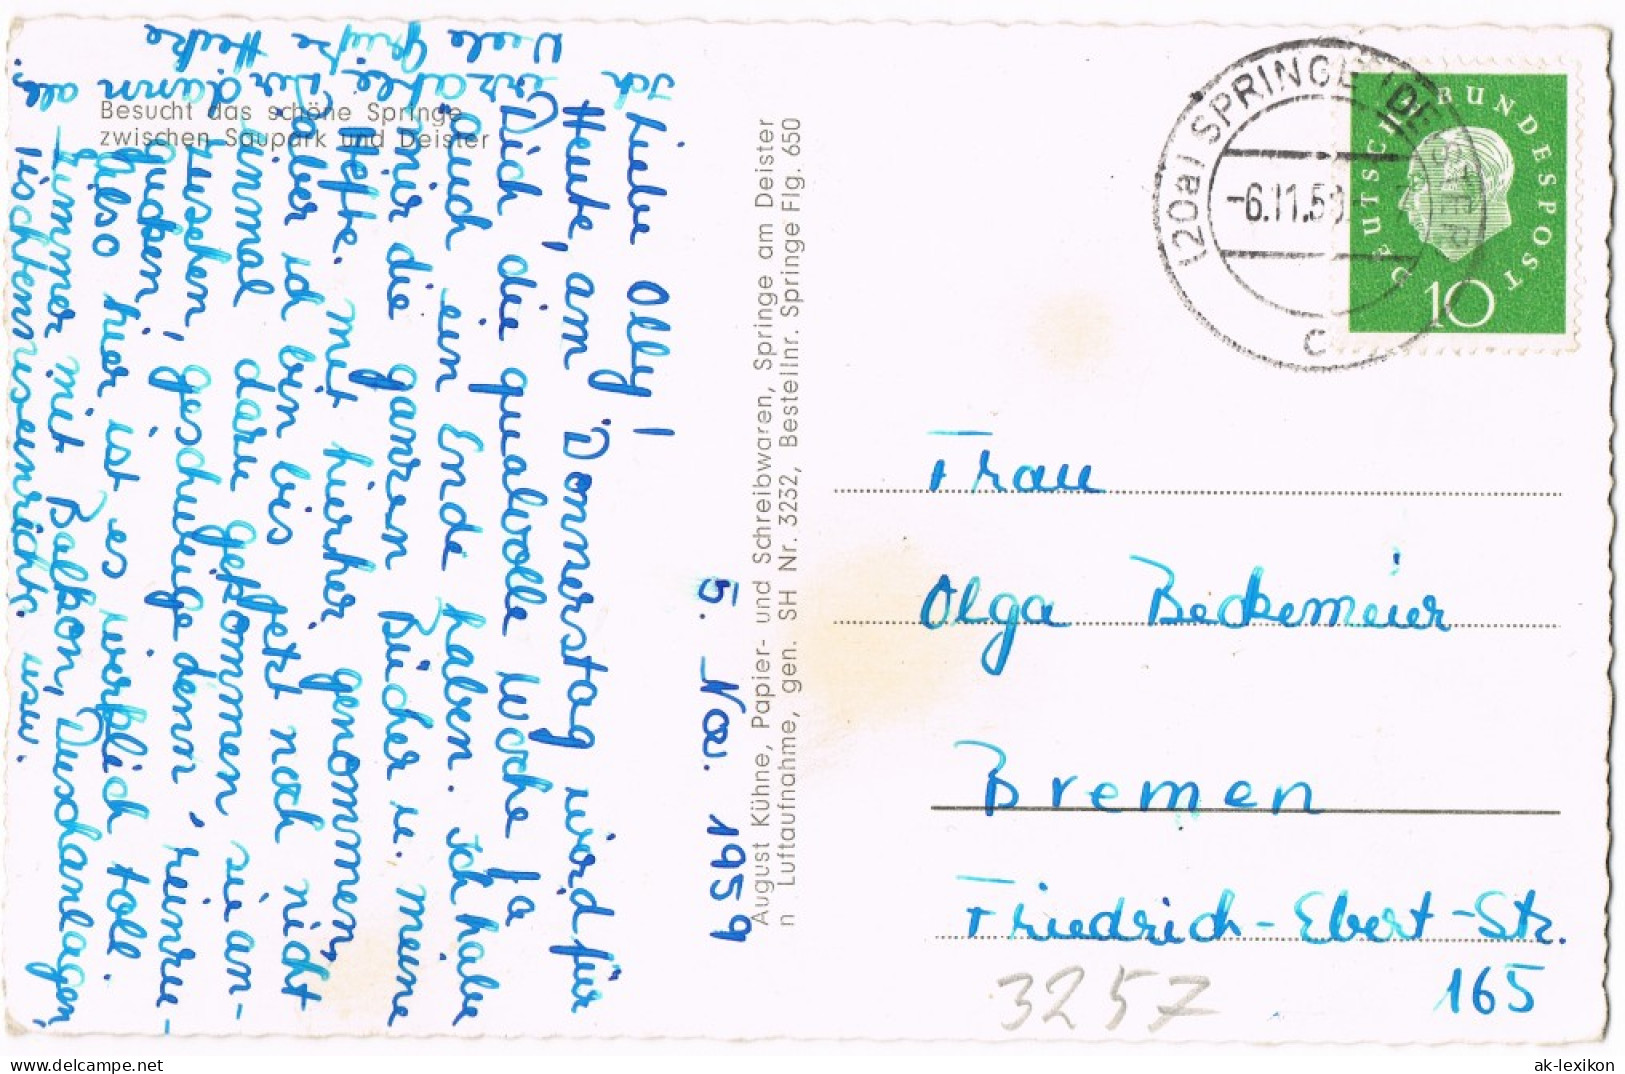 Besucht das schöne Springe
zwischen Saupark und Deister
5. Nov. 1959
Liebe Olly!
Heute, am Donnerstag wird für
Dich die qualvolle Woche ja
auch ein Ende haben. Ich habe
mir die ganzen Bücher u. meine
Hefte mit hierher genommen,
aber ich bin bis jetzt noch nicht
einmal dazu gekommen, sie an-
zusehen, geschweige denn 'reinzu-
gucken.
Also hier ist es wirklich toll.
Zimmer mit Balkon, Duschanlagen,
Tischtennisenricht. usw.
als
Ich erzähle Dir dann
Viele Grüße Heike
August Kühne, Papier- und Schreibwaren, Springe am Deister
n Luftaufnahme, gen. SH Nr. 3232, Bestellnr. Springe Flg. 650
(20a) SPRINGE (DEISTER)
-6.11.59
c
DEUTSCHE BUNDESPOST
10
Frau
Olga Beckemeier
Bremen
Friedrich-Ebert-Str.
165
3257
ak-lexikon